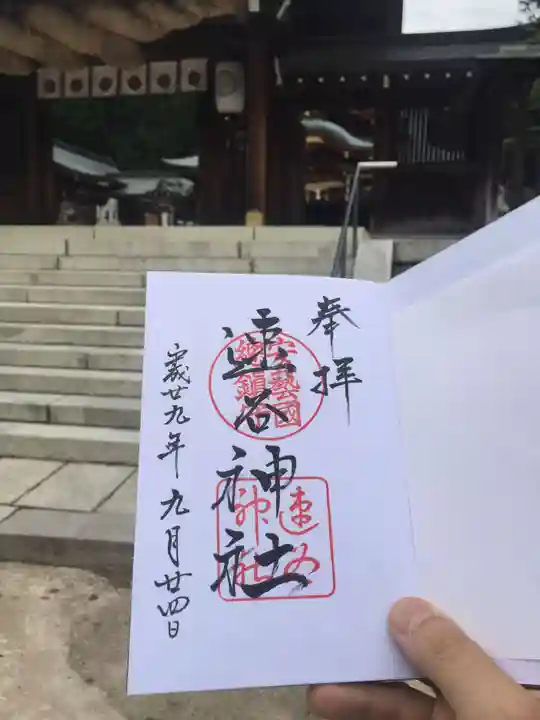 奉拝
速谷神社
安藝國
總鎮守
速谷
神社
平成廿九年九月廿四日